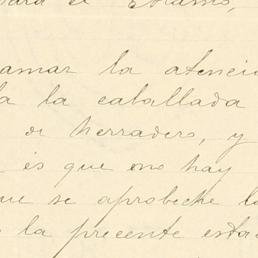 para el
amar la atenció
la la caballada
de herradero, y
es que no hay
que se aprobeche l
la precente estac